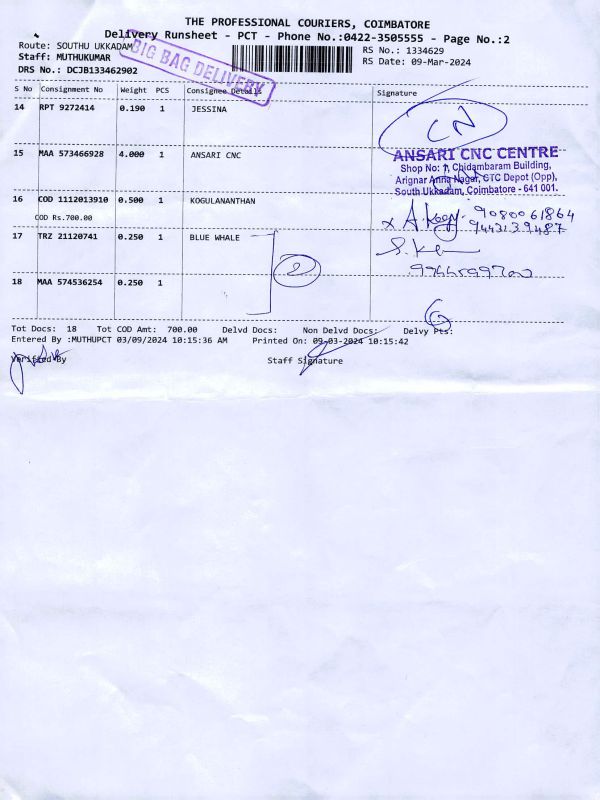 THE PROFESSIONAL COURIERS, COIMBATORE
Delivery Runsheet - PCT - Phone No.:0422-3505555 - Page No.:2
Route: SOUTHU UKKADAM
RS No.: 1334629
Staff: MUTHUKUMAR
RS Date: 09-Mar-2024
DRS No.: DCJB133462902
BIG BAG DELIVERY
S No Consignment No Weight PCS Consignee Details Signature
14 RPT 9272414 0.190 1 JESSINA
CN
15 MAA 573466928 4.000 1 ANSARI CNC
ANSARI CNC CENTRE
Shop No: 1, Chidambaram Building,
Arignar Anna Nagar, CTC Depot (Opp),
South Ukkadam, Coimbatore - 641 001.
16 COD 1112013910 0.500 1 KOGULANANTHAN
COD Rs.700.00
9080061864
9443139487
17 TRZ 21120741 0.250 1 BLUE WHALE
2
18 MAA 574536254 0.250 1
Tot Docs: 18 Tot COD Amt: 700.00 Delvd Docs: Non Delvd Docs: Delvy Pts:
6
Entered By :MUTHUPCT 03/09/2024 10:15:36 AM Printed On: 09-03-2024 10:15:42
Verified By Staff Signature